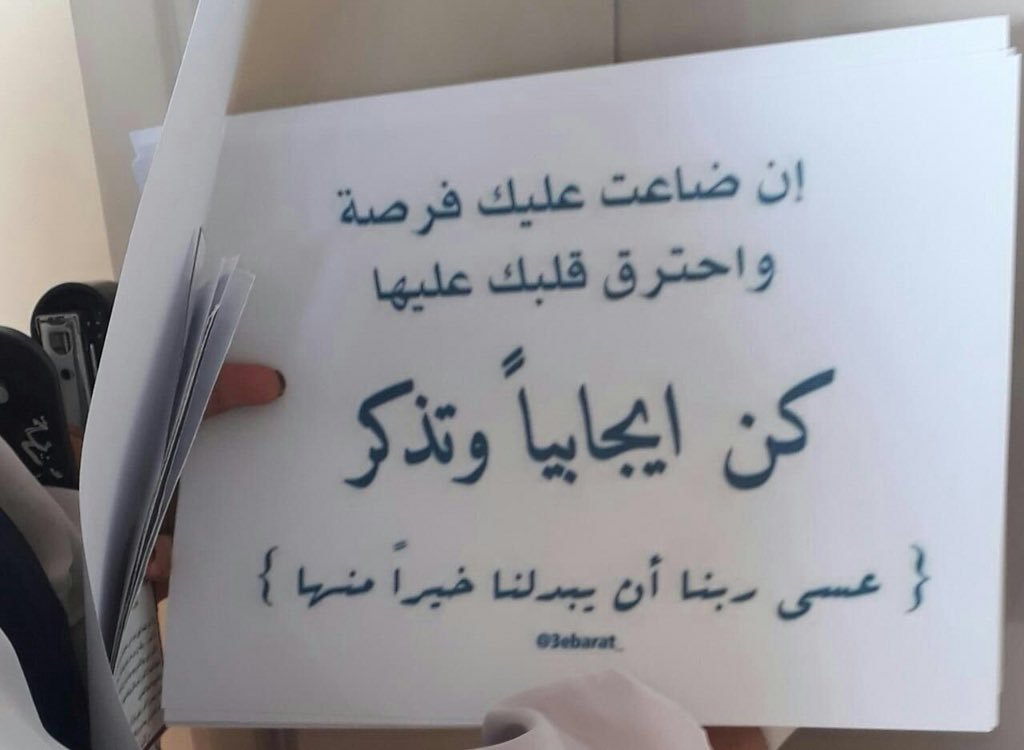 إن ضاعت عليك فرصة
واحترق قلبك عليها
كن ايجابياً وتذكر
{ عسى ربنا أن يبدلنا خيراً منها }
@3ebarat_